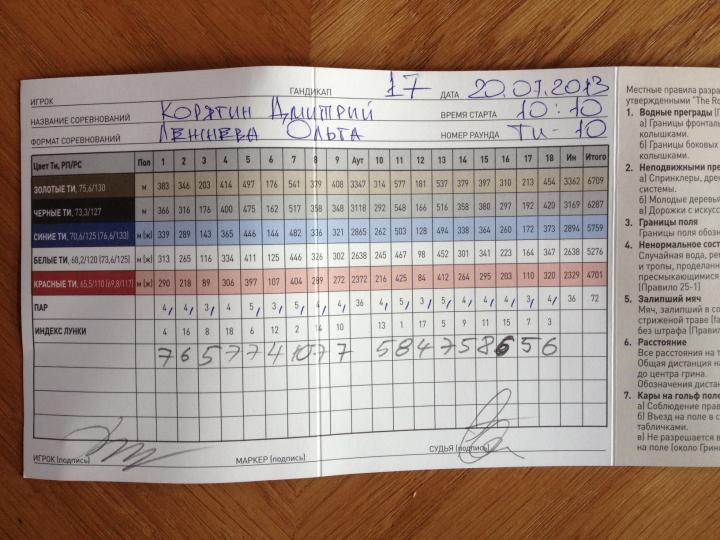 ГАНДИКАП 17 ДАТА 20.07.2013
ИГРОК
НАЗВАНИЕ СОРЕВНОВАНИЙ КОРЯГИН ДМИТРИЙ ВРЕМЯ СТАРТА 10:10
ФОРМАТ СОРЕВНОВАНИЙ ОЛЬГА НОМЕР РАУНДА ТИ-10
Цвет Ти, РП/РС Пол 1 2 3 4 5 6 7 8 9 Аут 10 11 12 13 14 15 16 17 18 Ин Итого
ЗОЛОТЫЕ ТИ, 75,6/130 м 383 346 203 414 497 176 541 379 408 3347 314 577 181 537 379 397 310 213 454 3362 6709
ЧЕРНЫЕ ТИ, 73,3/127 м 366 316 176 400 475 162 517 358 348 3118 292 548 166 516 358 380 297 192 420 3169 6287
СИНИЕ ТИ, 70,6/125 (76,6/133) м (ж) 339 289 143 365 446 144 482 336 321 2865 262 503 128 494 338 364 260 172 373 2894 5759
БЕЛЫЕ ТИ, 68,2/120 (73,6/125) м (ж) 313 265 116 334 411 125 446 326 302 2638 245 467 98 452 301 341 223 164 347 2638 5276
КРАСНЫЕ ТИ, 65,5/110 (69,8/117) м (ж) 290 218 89 306 397 107 404 289 272 2372 216 425 84 412 264 295 203 110 320 2329 4701
ПАР 4 4 3 4 5 3 5 4 4 36 4 5 3 5 4 4 4 3 4 36 72
ИНДЕКС ЛУНКИ 4 16 8 18 6 12 2 14 10 13 1 17 5 9 11 15 7 3
7 6 5 7 7 4 10 7 7 5 8 4 7 5 8 6 5 6
ИГРОК (подпись) МАРКЕР (подпись) СУДЬЯ (подпись)
Местные правила разра
утвержденными "The Ro
1. Водные преграды (П
а) Границы фронталь
колышками.
б) Границы боковых
колышками.
2. Неподвижными пре
а) Спринклеры, дрен
системы.
б) Молодые деревья
в) Дорожки с искусс
3. Границы поля
Границы поля обозн
4. Ненормальное сост
Случайная вода, рем
и тропы, проделанн
пресмыкающимися
(Правило 25-1)
5. Залипший мяч
Мяч, залипший в со
стриженой траве (fa
без штрафа (Правил
6. Расстояние
Все расстояния на т
Общая дистанция на
до центра грина.
Обозначения дистан
7. Кары на гольф поле
а) Соблюдение прав
б) Въезд на поле в с
табличками.
в) Не разрешается в
на поле (около Грин